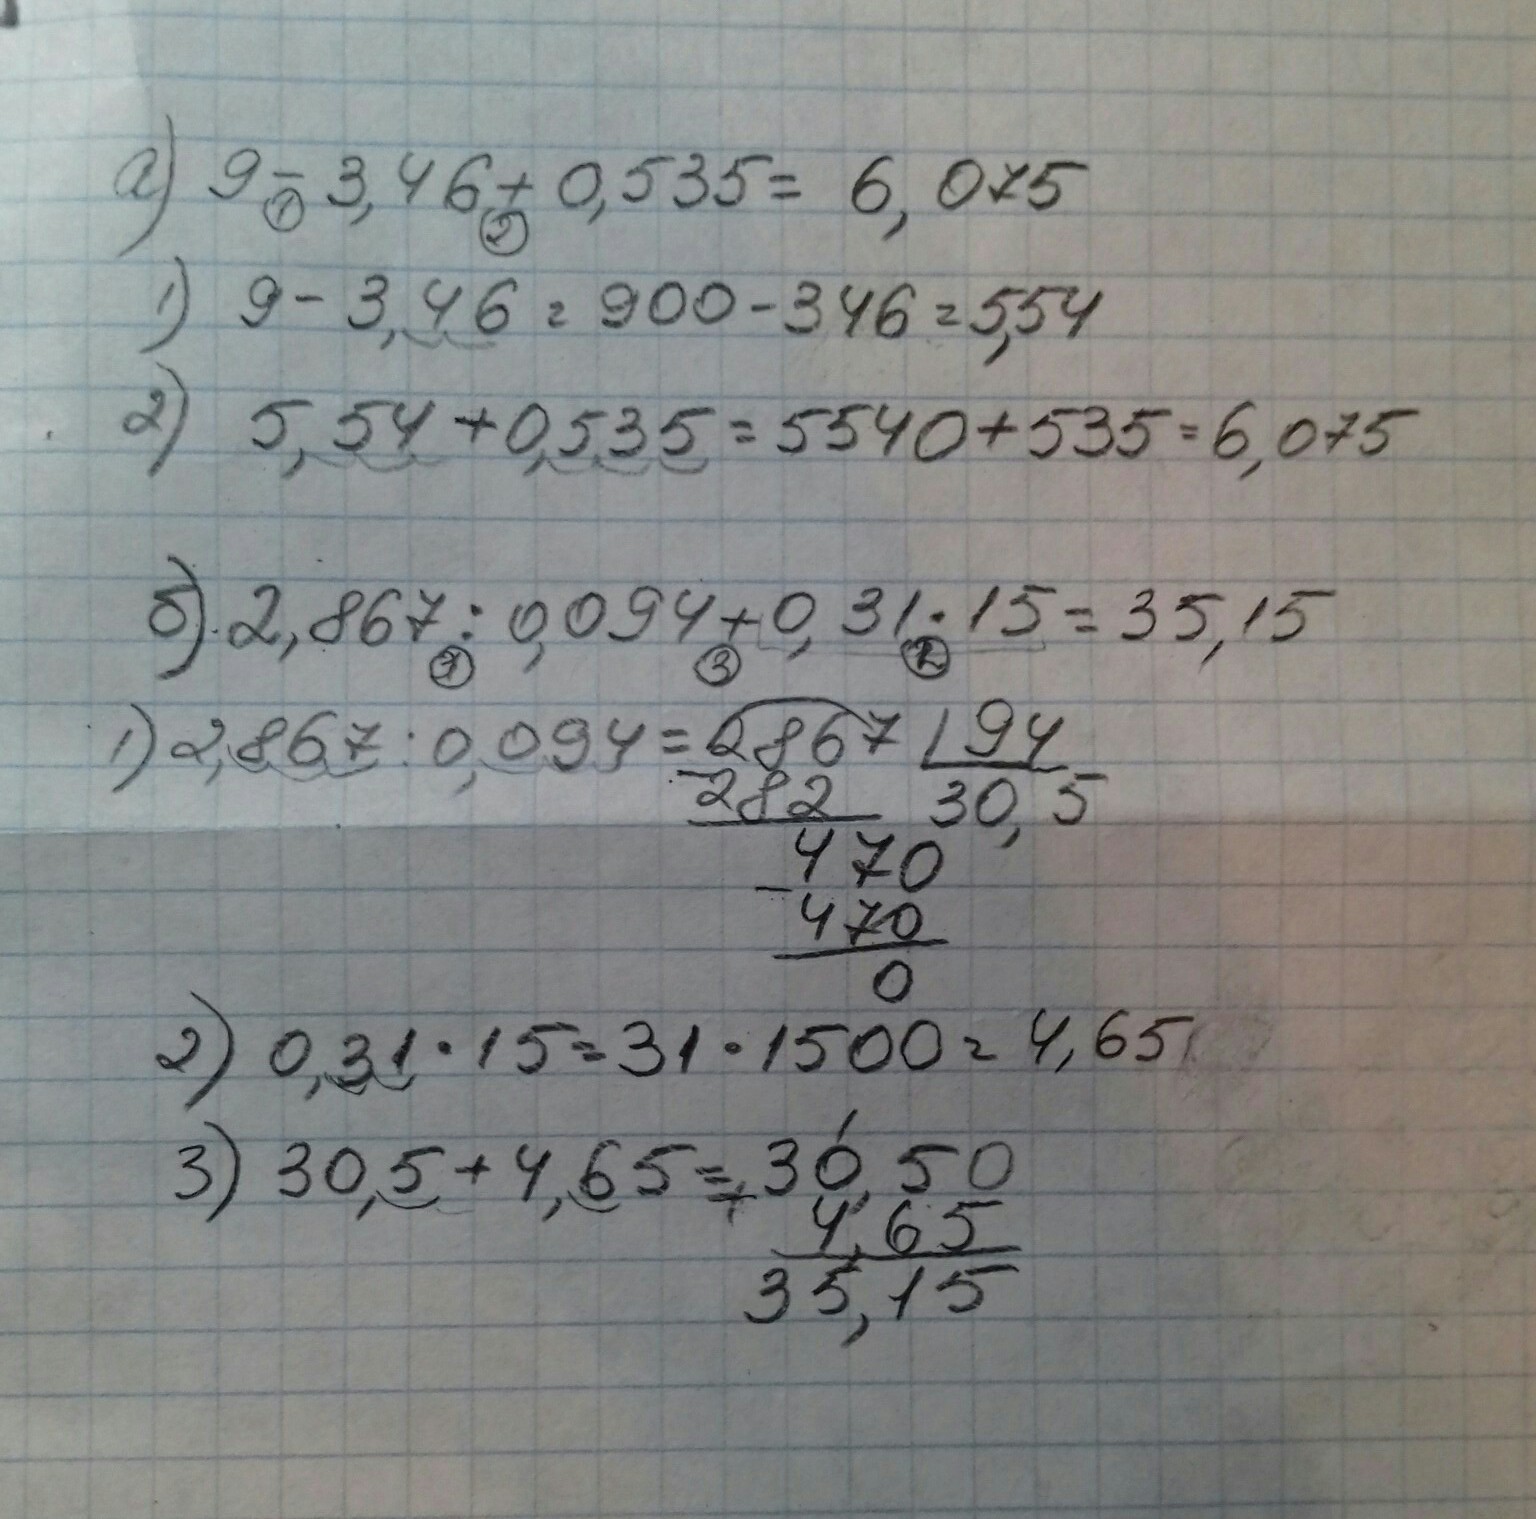 а) 9 - 3,46 + 0,535 = 6,075
① ②
1) 9 - 3,46 = 900 - 346 = 5,54
2) 5,54 + 0,535 = 5540 + 535 = 6,075
б) 2,867 : 0,094 + 0,31 · 15 = 35,15
① ③ ②
1) 2,867 : 0,094 = 2867 | 94
- 282 30,5
470
- 470
0
2) 0,31 · 15 = 31 · 1500 = 4,65
3) 30,5 + 4,65 = + 30,50
4,65
35,15